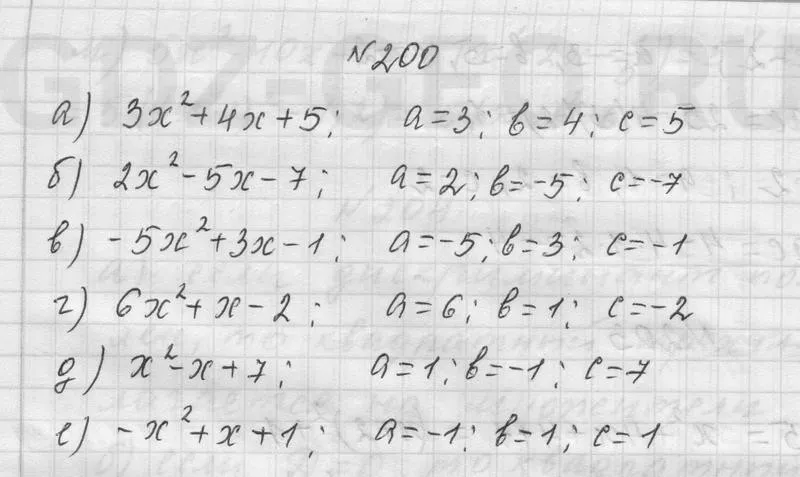 №200
а) 3x²+4x+5; a=3; в=4; c=5
б) 2x²-5x-7; a=2; в=-5; c=-7
в) -5x²+3x-1; a=-5; в=3; c=-1
г) 6x²+x-2; a=6; в=1; c=-2
д) x²-x+7; a=1; в=-1; c=7
е) -x²+x+1; a=-1; в=1; c=1